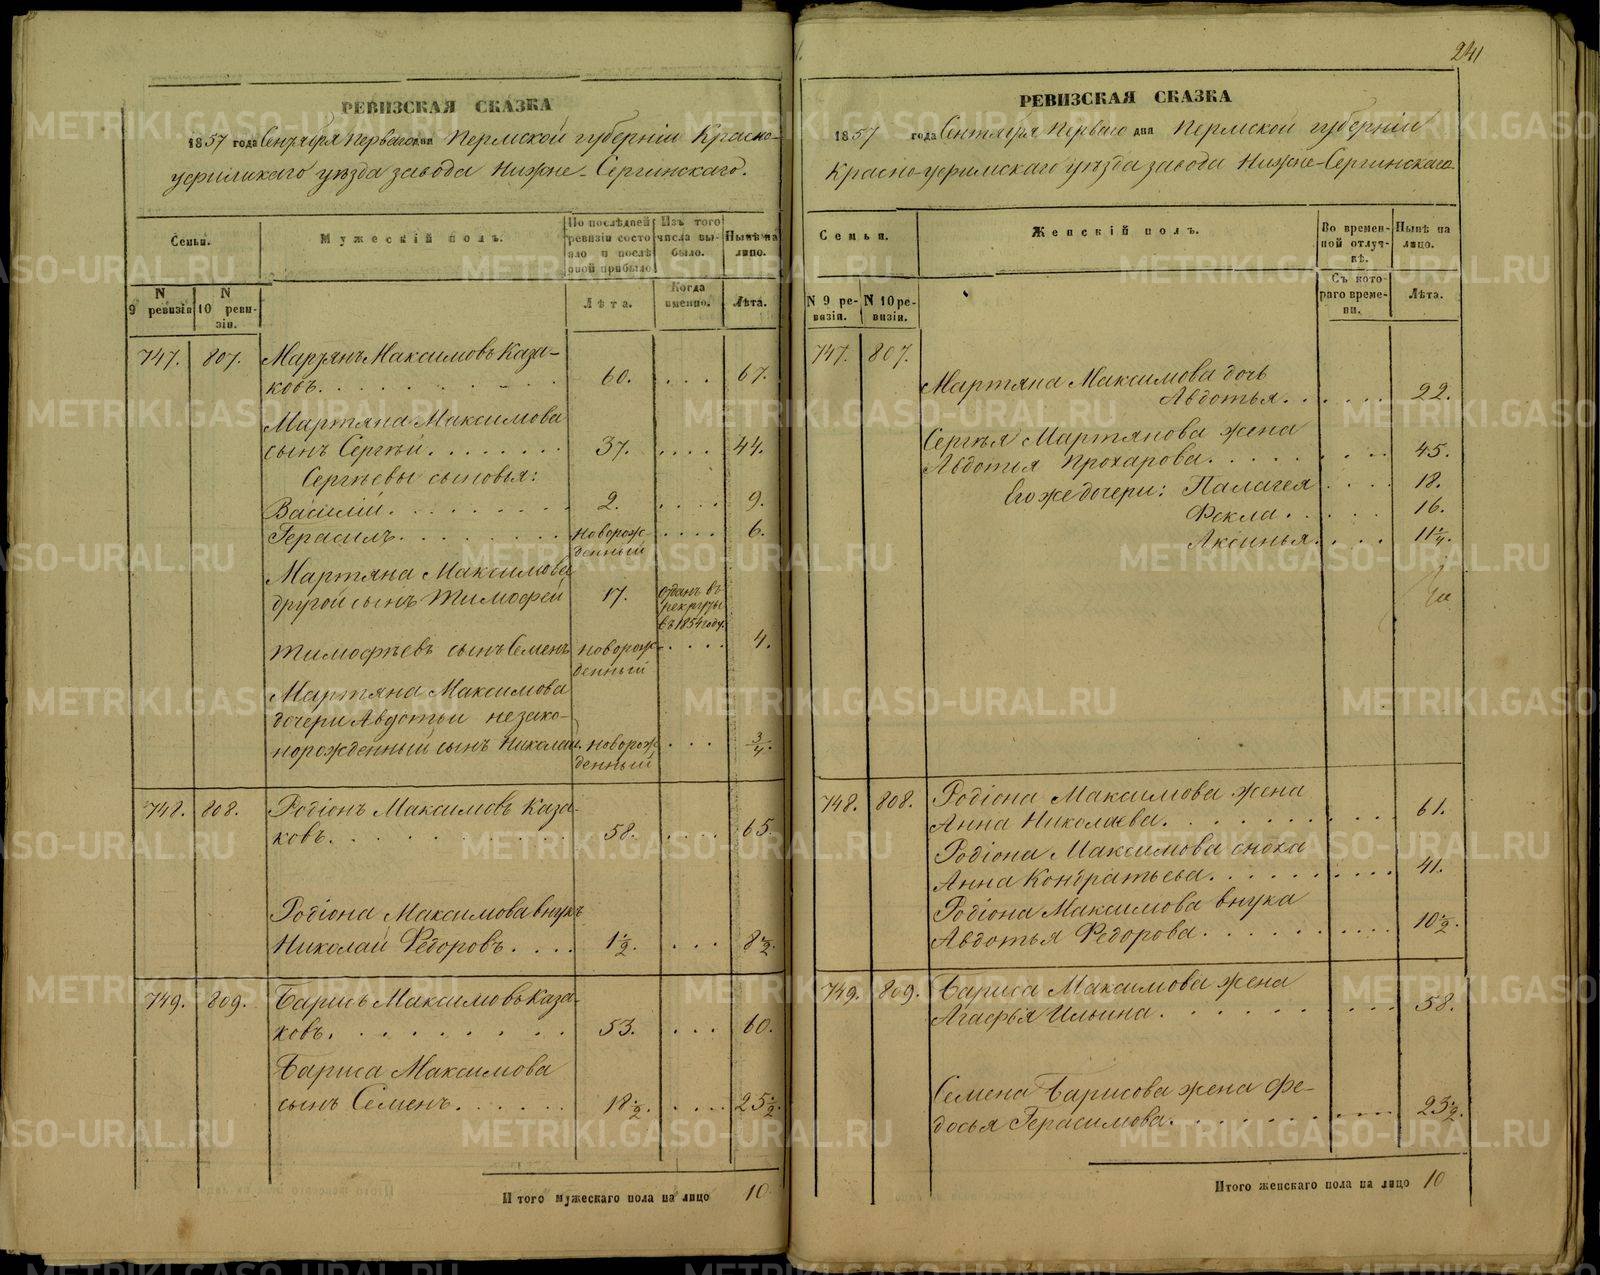 РЕВИЗСКАЯ СКАЗКА
1857 года Сентября Перваго дня Пермской губерніи Красно-
уфимскаго уѣзда завода Нижне-Сергинскаго.
Семьи.
Мужескій полъ.
По послѣдней ревизіи состояло и послѣ оной прибыло
Изъ того числа выбыло.
Нынѣ на лицо.
N 9 ревизіи
N 10 ревизіи.
Лѣта.
Когда именно.
Лѣта.
747. 807. Мартянъ Максимовъ Каза-
ковъ. 60. 67.
Мартяна Максимова
сынъ Сергѣй. 37. 44.
Сергѣевы сыновья:
Василій. 2. 9.
Герасимъ. новорож- 6.
денный
Мартяна Максимова
другой сынъ Тимофей 17. отданъ въ
рекруты
въ 1854 году.
Тимофѣевъ сынъ Семенъ новорож- 4.
денный
Мартяна Максимова
дочери Авдотьи незако-
норожденный сынъ Николай. новорож- 3/4.
денный
748. 808. Родіонъ Максимовъ Каза-
ковъ. 58. 65.
Родіона Максимова внукъ
Николай Федоровъ. 1 1/2. 8 1/2.
749. 809. Барисъ Максимовъ Каза-
ковъ. 53. 60.
Бариса Максимова
сынъ Семенъ. 18 1/2. 25 1/2.
Итого мужескаго пола на лицо 10
241
РЕВИЗСКАЯ СКАЗКА
1857 года Сентября Перваго дня Пермской губерніи
Красно-уфимскаго уѣзда завода Нижне-Сергинскаго.
Семьи.
Женскій полъ.
Во временной отлучкѣ.
Нынѣ на лицо.
N 9 ревизіи.
N 10 ревизіи.
Съ котораго времени.
Лѣта.
747. 807.
Мартяна Максимова дочь
Авдотья. 22.
Сергѣя Мартянова жена
Авдотья Прохарова. 45.
Его же дочери: Палагея 18.
Фекла. 16.
Аксинья. 11 1/4.
748. 808. Родіона Максимова жена
Анна Николаева. 61.
Родіона Максимова сноха
Анна Кондратьева. 41.
Родіона Максимова внука
Авдотья Федорова. 10 1/2.
749. 809. Бариса Максимова жена
Агафья Ильина. 58.
Семена Барисова жена Фе-
досья Герасимова. 23 1/2.
Итого женскаго пола на лицо 10
METRIKI.GASO-URAL.RU